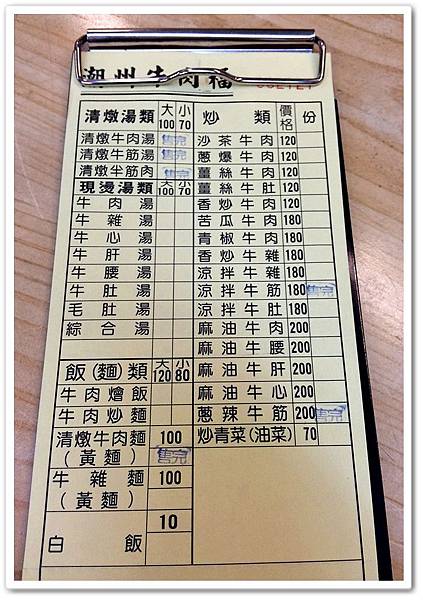 潮州牛肉福
清燉湯類 大100 小70
清燉牛肉湯 售完
清燉牛筋湯 售完
清燉半筋肉 售完
現燙湯類 大100 小70
牛肉湯
牛雜湯
牛心湯
牛肝湯
牛腰湯
牛肚湯
毛肚湯
綜合湯
飯(麵)類 大120 小80
牛肉燴飯
牛肉炒麵
清燉牛肉麵(黃麵) 100 售完
牛雜麵(黃麵) 100
白飯 10
炒類 價格 份
沙茶牛肉 120
蔥爆牛肉 120
薑絲牛肉 120
薑絲牛肚 120
香炒牛肉 120
苦瓜牛肉 180
青椒牛肉 180
香炒牛雜 180
涼拌牛雜 180
涼拌牛筋 180 售完
涼拌牛肚 180
麻油牛肉 200
麻油牛腰 200
麻油牛肝 200
麻油牛心 200
蔥辣牛筋 200 售完
炒青菜(油菜) 70